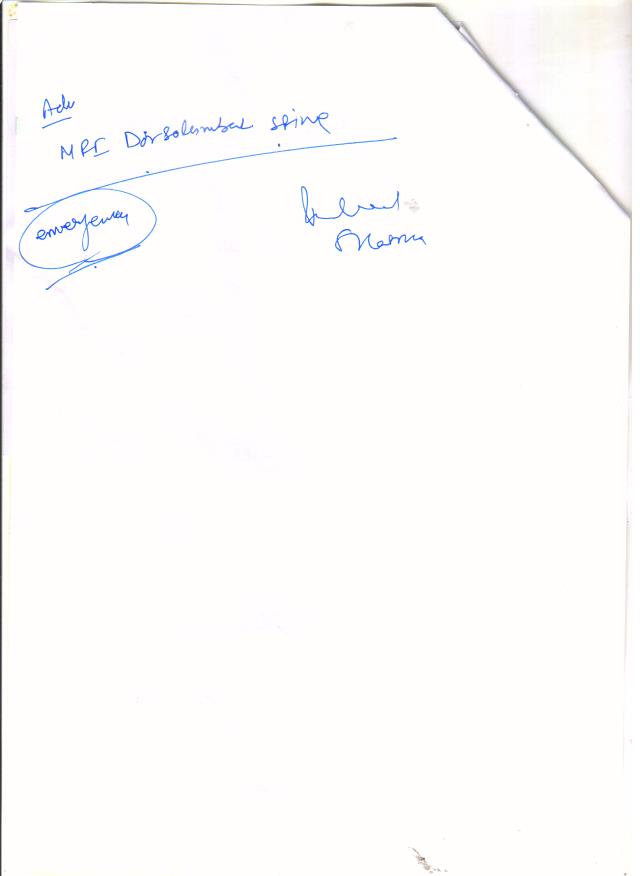 Adv
MRI Dorsolumbar spine
emergency
Sharma